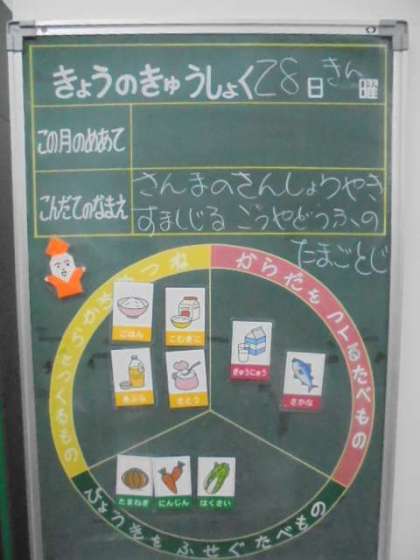 きょうのきゅうしょく 28日 きん曜
この月のめあて
こんだてのなまえ
さんまのさんしょうやき
すましじる こうやどうふの
たまごとじ
からだをつくるたべもの
ごはん
こむぎこ
あぶら
さとう
ぎゅうにゅう
さかな
たまねぎ
にんじん
はくさい
びょうきをふせぐたべもの